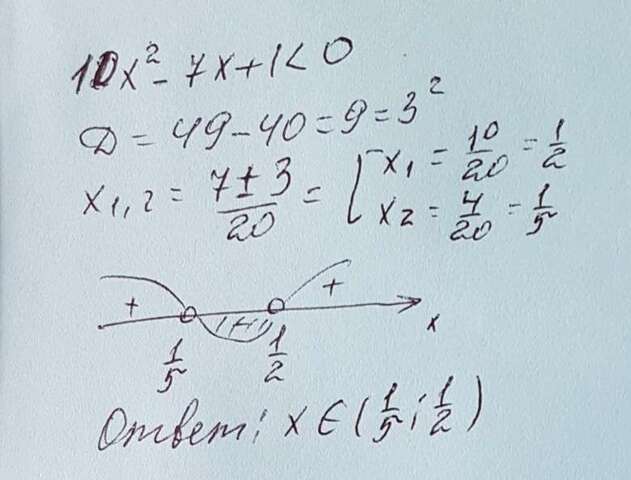 10x² - 7x + 1 < 0
D = 49 - 40 = 9 = 3²
x₁,₂ = (7 ± 3)/20 = [ x₁ = 10/20 = 1/2
x₂ = 4/20 = 1/5
+ +
x
1/5 1/2
Ответ: x ∈ (1/5; 1/2)